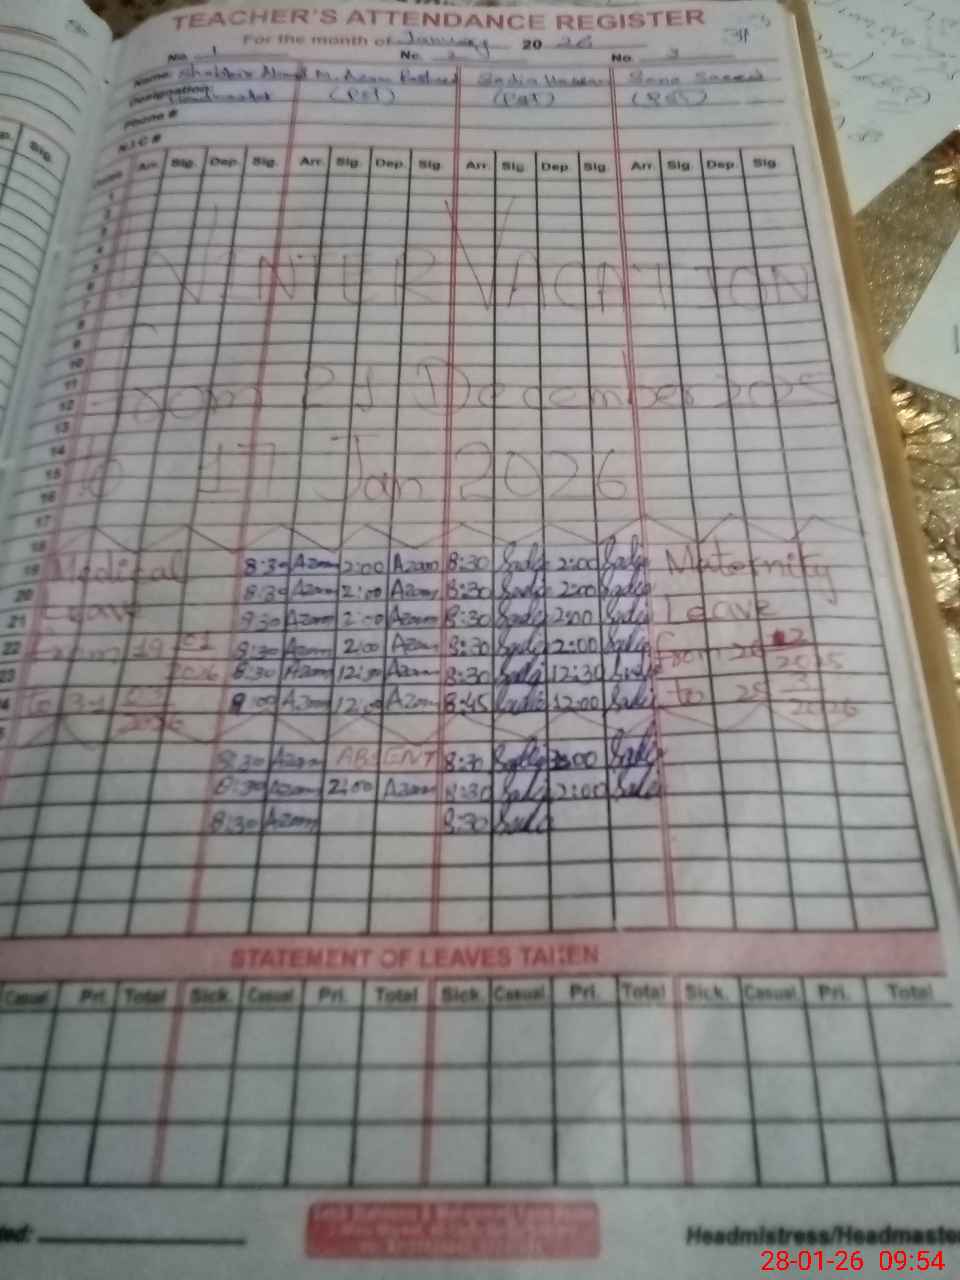 TEACHER'S ATTENDANCE REGISTER
For the month of January 20 26
No. 1 No. 2 No. 3
Name Shabbir Ahmad M. Azam Rasheed Sadia Hassan Sana Saeed
Designation Headmaster (PST) (PST) (PST)
Phone #
N.I.C #
Sig.
Dates Arr. Sig. Dep. Sig. Arr. Sig. Dep. Sig. Arr. Sig. Dep. Sig. Arr. Sig. Dep. Sig.
1
2
3
4
5
WINTER VACATION
6
7
8
9
10
11
From 21 December 2025
12
13
14
15
To 17 Jan 2026
16
17
18
19 Medical 8:30 Azam 2:00 Azam 8:30 Sadia 2:00 Sadia Maternity
20 8:30 Azam 2:00 Azam 8:30 Sadia 2:00 Sadia
21 Leave 8:30 Azam 2:00 Azam 8:30 Sadia 2:00 Sadia Leave
22 From 19 01 8:30 Azam 2:00 Azam 8:30 Sadia 2:00 Sadia From
23 2026 8:30 Azam Azam 8:30 Sadia 12:30 Sadia 2025
24 To 31 03 9:00 Azam 12:00 Azam 8:45 Sadia 12:00 Sadia to 25 3
2026 2026
8:30 Azam ABSENT 8:30 Sadia Sadia
8:30 Azam 2:00 Azam 8:30 Sadia 2:00 Sadia
8:30 Azam 8:30 Sadia
STATEMENT OF LEAVES TAKEN
Casual Pri. Total Sick. Casual Pri. Total Sick. Casual Pri. Total Sick. Casual. Pri. Total
Headmistress/Headmaster
28-01-26 09:54